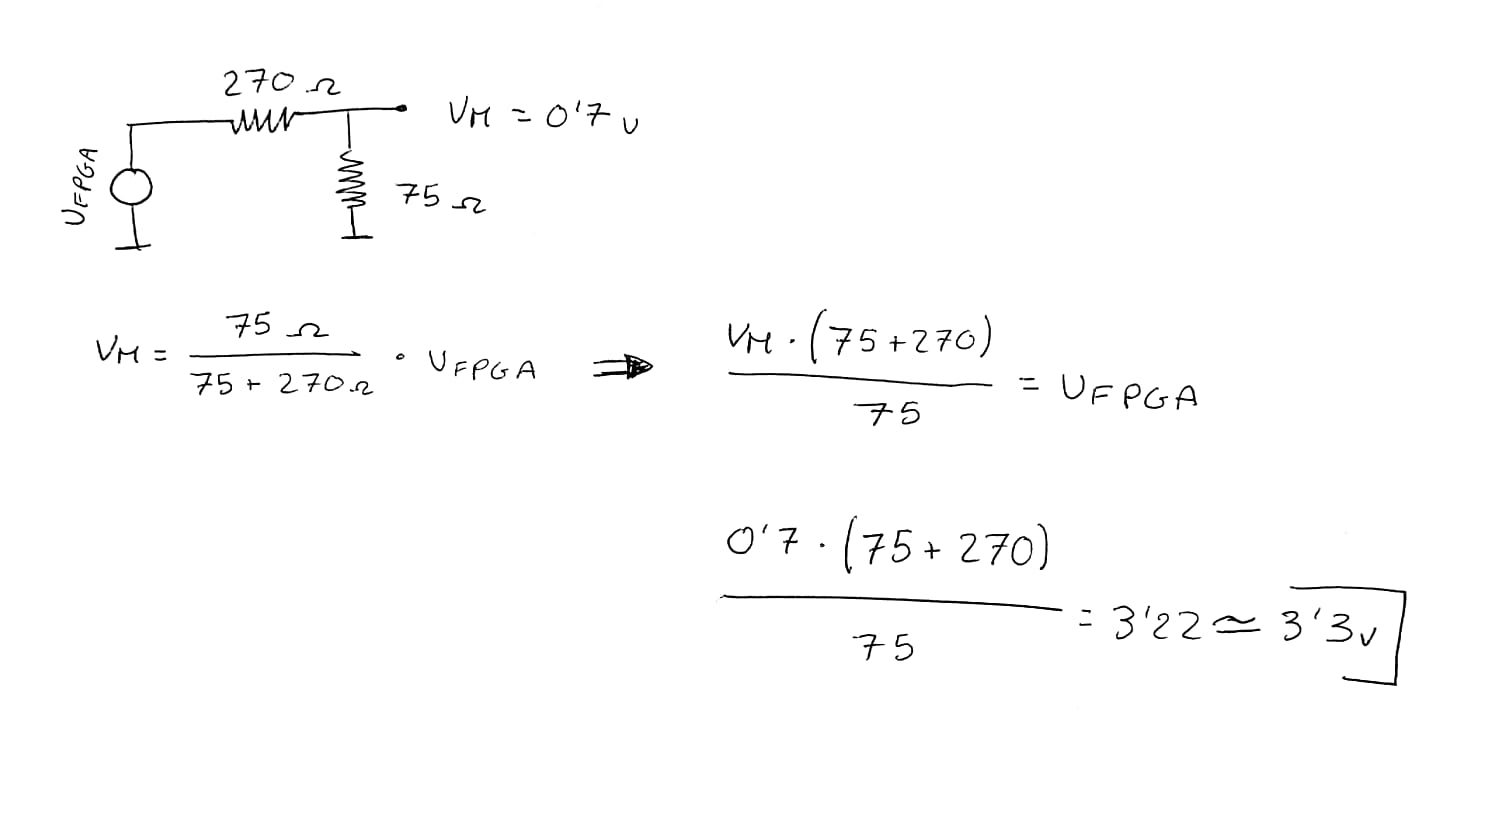 270 Ω
VM = 0'7 V
UFPGA
75 Ω
VM = 75 Ω / 75 + 270 Ω · UFPGA ⇒ VM · (75 + 270) / 75 = UFPGA
0'7 · (75 + 270) / 75 = 3'22 ≃ 3'3 V